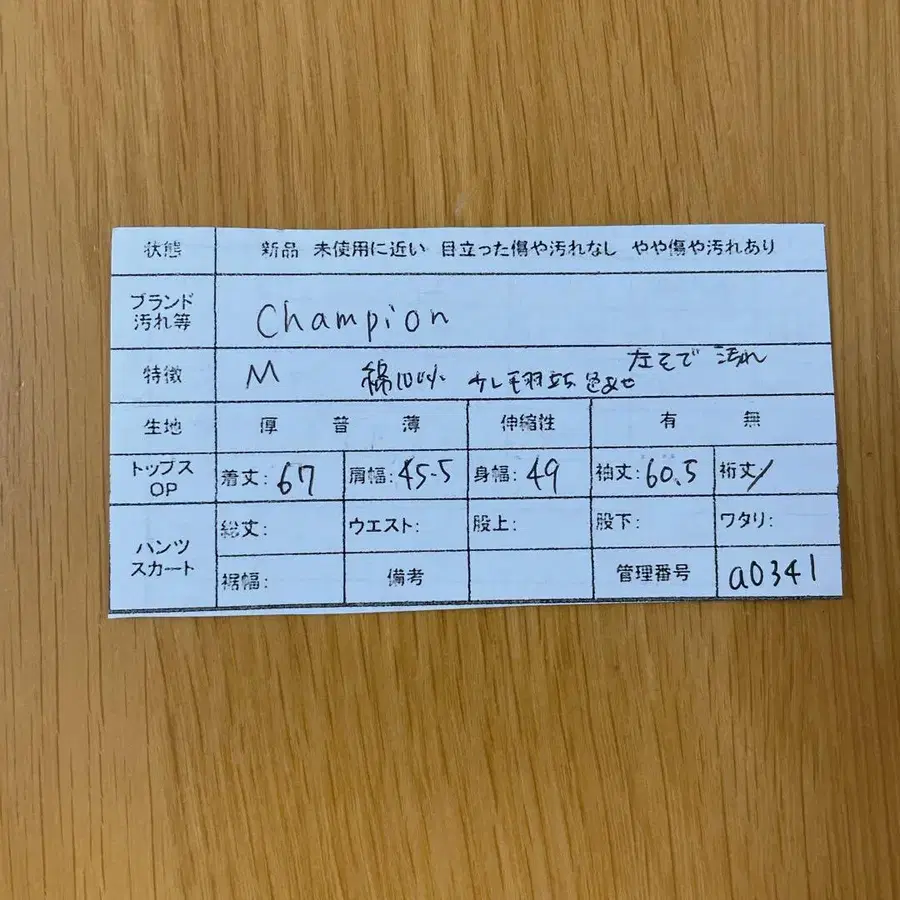 状態 新品 未使用に近い 目立った傷や汚れなし やや傷や汚れあり
ブランド
汚れ等
Champion
特徴 M 綿100% 左そで 汚れ
生地 厚 普 薄 伸縮性 有 無
トップス
OP
着丈: 67 肩幅: 45.5 身幅: 49 袖丈: 60.5 裄丈/
パンツ
スカート
総丈: ウエスト: 股上: 股下: ワタリ:
裾幅: 備考 管理番号 a0341